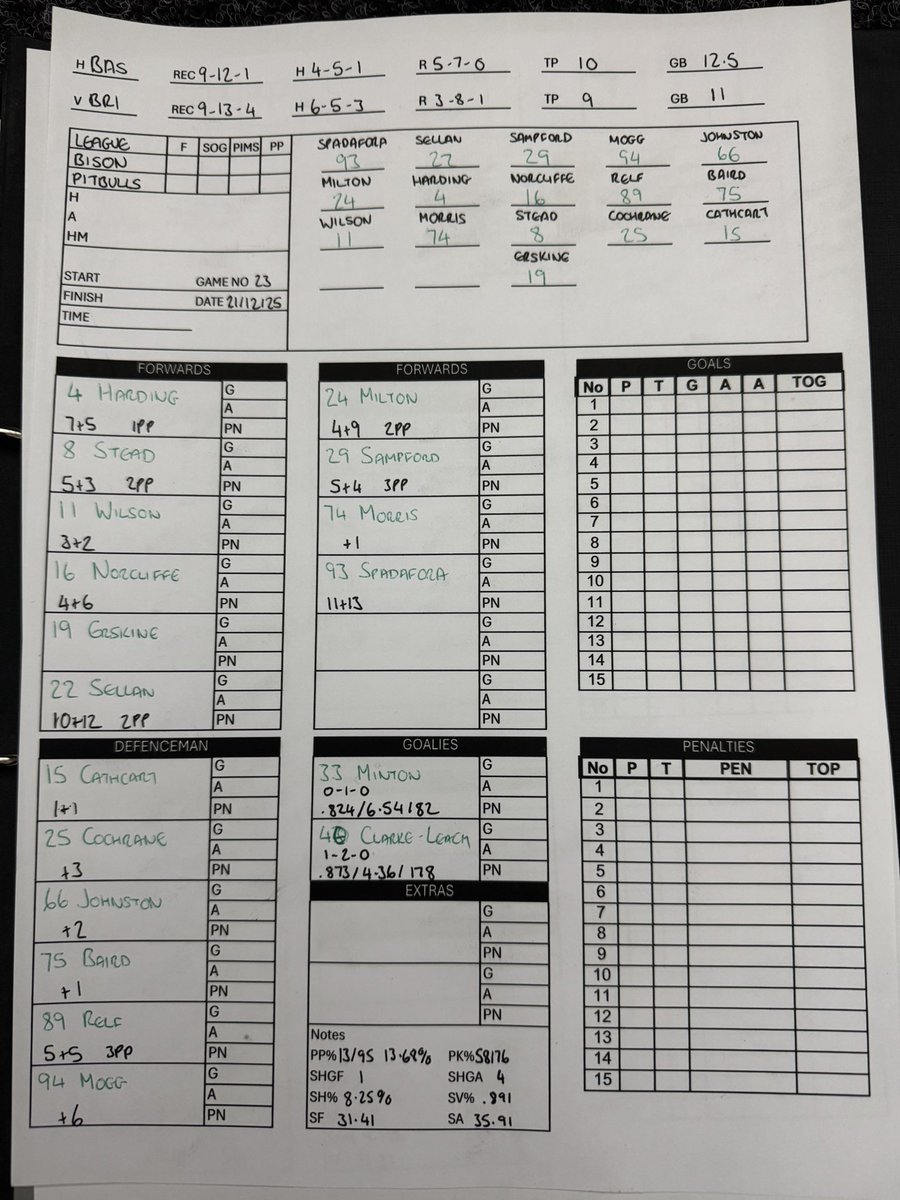 H BAS REC 9-12-1 H 4-5-1 R 5-7-0 TP 10 GB 12.5
V BRI REC 9-13-4 H 6-5-3 R 3-8-1 TP 9 GB 11
LEAGUE F SOG PIMS PP
BISON
PITBULLS
H
A
HM
START GAME NO 23
FINISH DATE 21/12/25
TIME
SPADAFORA SELLAN SAMPFORD MOGG JOHNSTON
93 22 29 94 66
MILTON HARDING NORCLIFFE RELF BAIRD
24 4 16 89 75
WILSON MORRIS STEAD COCHRANE CATHCART
11 74 8 25 15
ERSKINE
19
FORWARDS
4 HARDING G
A
7+5 1PP PN
8 STEAD G
A
5+3 2PP PN
11 WILSON G
A
3+2 PN
16 NORCLIFFE G
A
4+6 PN
19 ERSKINE G
A
PN
22 SELLAN G
A
10+12 2PP PN
FORWARDS
24 MILTON G
A
4+9 2PP PN
29 SAMPFORD G
A
5+4 3PP PN
74 MORRIS G
A
+1 PN
93 SPADAFORA G
A
11+13 PN
G
A
PN
G
A
PN
GOALS
No P T G A A TOG
1
2
3
4
5
6
7
8
9
10
11
12
13
14
15
DEFENCEMAN
15 CATHCART G
A
1+1 PN
25 COCHRANE G
A
+3 PN
66 JOHNSTON G
A
+2 PN
75 BAIRD G
A
+1 PN
89 RELF G
A
5+5 3PP PN
94 MOGG G
A
+6 PN
GOALIES
33 MINTON G
0-1-0 A
.824/6.54/82 PN
CLARKE-LEACH G
1-2-0 A
.873/4.36/178 PN
EXTRAS
G
A
PN
G
A
PN
Notes
PP% 13/95 13.68% PK% 58/76
SHGF 1 SHGA 4
SH% 8.25% SV% .891
SF 31.41 SA 35.91
PENALTIES
No P T PEN TOP
1
2
3
4
5
6
7
8
9
10
11
12
13
14
15